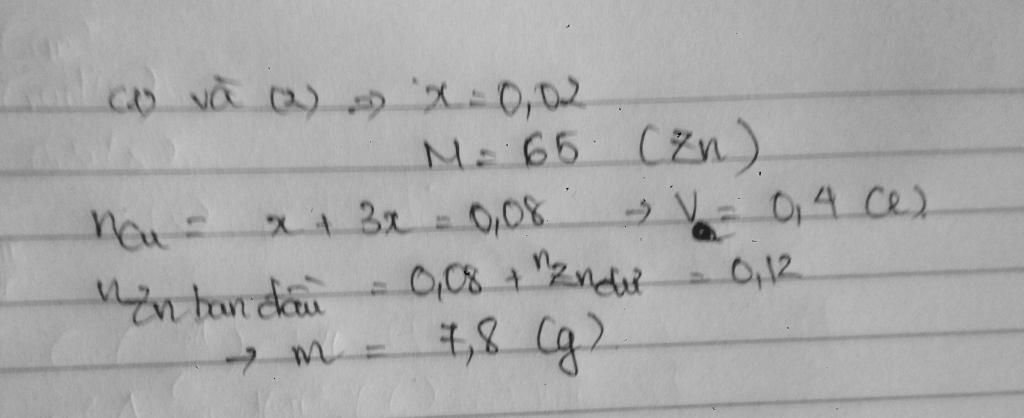 (1) và (2) => x = 0,02
M = 65 (Zn).
nCu = x + 3x = 0,08 → V = 0,4 (l)
nZn ban đầu = 0,08 + nZn dư = 0,12
→ m = 7,8 (g)